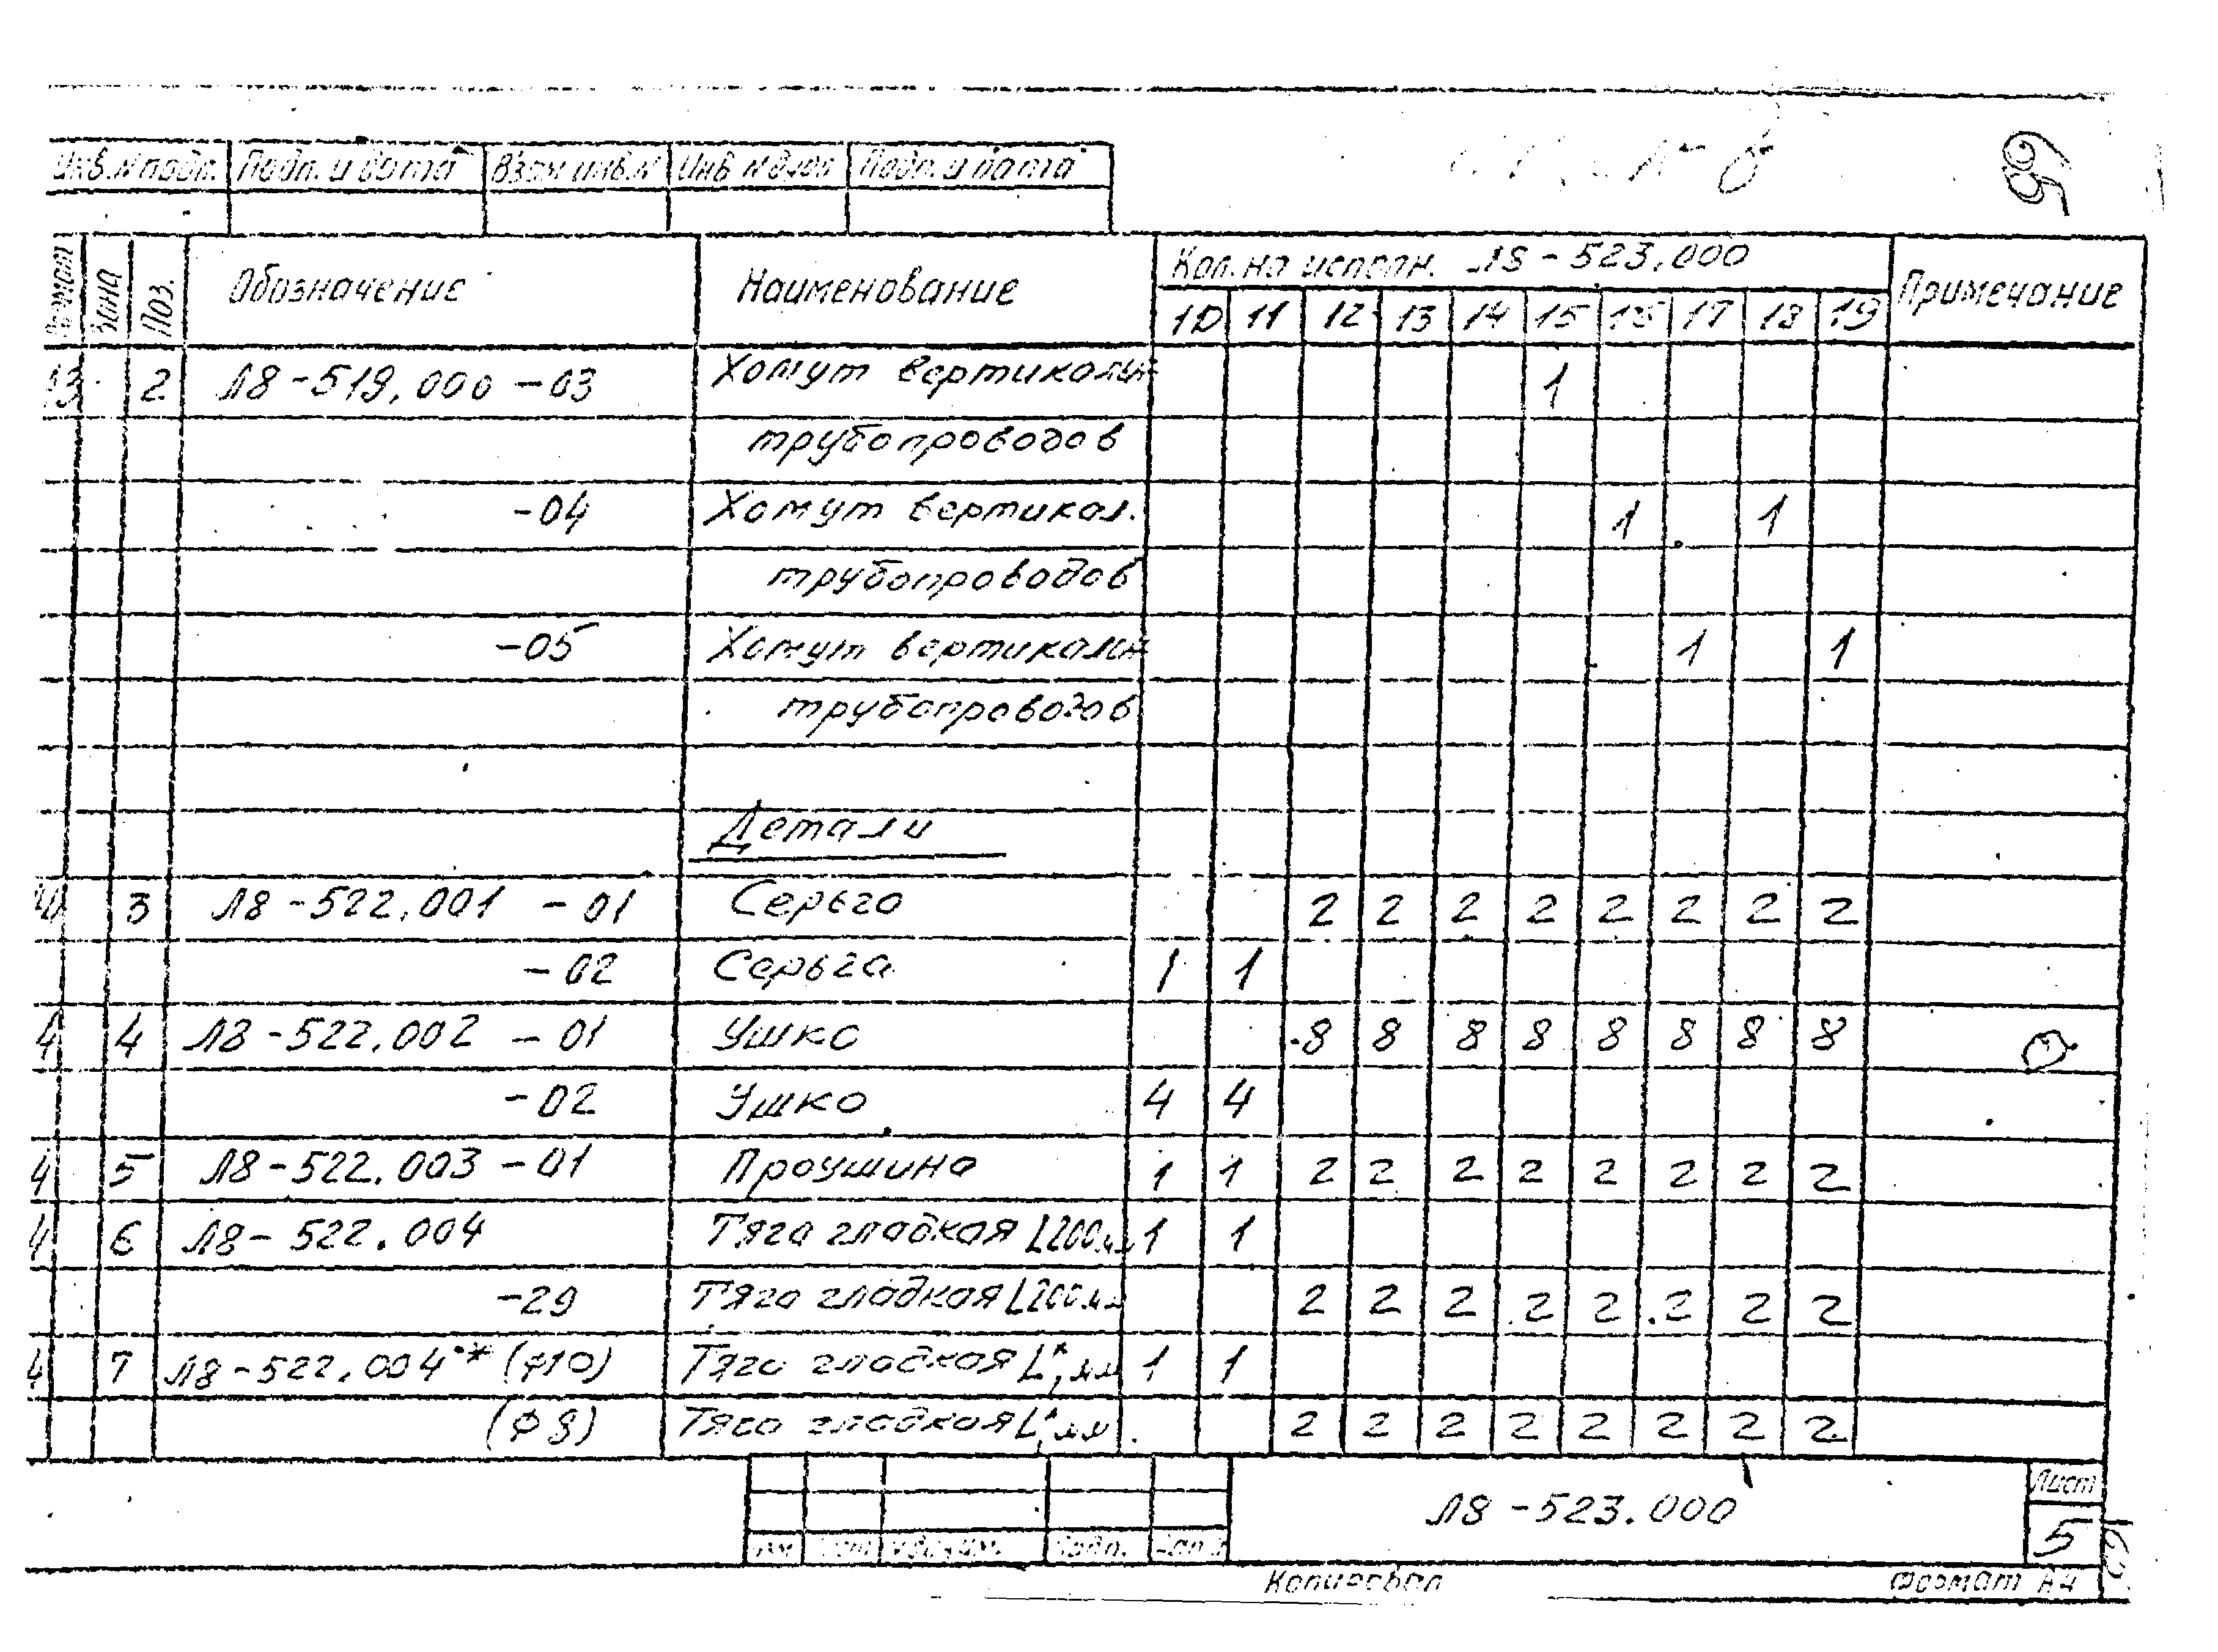 Инв.N подл. Подп. и дата Взам инв.N Инв N дубл Подп. и дата
Формат Зона Поз. Обозначение Наименование Кол. на исполн. Л8-523.000 Примечание
10 11 12 13 14 15 16 17 18 19
2 Л8-519.000-03 Хомут вертикальн 1
трубопроводов
-04 Хомут вертикал. 1 1
трубопроводов
-05 Хомут вертикальн 1 1
трубопроводов
Детали
3 Л8-522.001 -01 Серьга 2 2 2 2 2 2 2 2
-02 Серьга 1 1
4 4 Л8-522.002 -01 Ушко 8 8 8 8 8 8 8 8
-02 Ушко 4 4
4 5 Л8-522.003-01 Проушина 1 1 2 2 2 2 2 2 2 2
4 6 Л8-522.004 Тяга гладкая L200мм 1 1
-29 Тяга гладкая L200мм 2 2 2 2 2 2 2 2
4 7 Л8-522.004* (φ10) Тяга гладкая L*,мм 1 1
(φ8) Тяга гладкая L*,мм 2 2 2 2 2 2 2 2
Л8-523.000 Лист
5
Копировал Формат А4